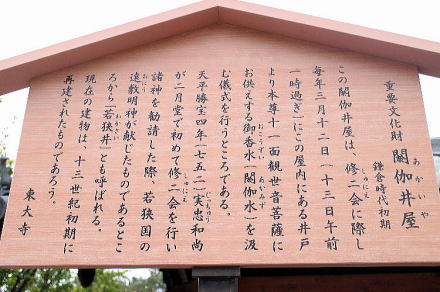 重要文化財 閼伽井屋
あかいや
鎌倉時代初期
この閼伽井屋は、修二会に際し
しゅにえ
毎年三月十二日(十三日午前
一時過ぎ)にこの屋内にある井戸
より本尊十一面観世音菩薩に
お供えする御香水(閼伽水)を汲
おこうずい
あかみず
む儀式を行うところである。
天平勝宝四年(七五二)実忠和尚
が二月堂で初めて修二会を行い
しゅにえ
諸神を勧請した際、若狭国の
遠敷明神が献じたものであるとこ
おにゅう
ろから「若狭井」とも呼ばれる。
わかさい
現在の建物は、十三世紀初期に
再建されたものであろう。
東大寺